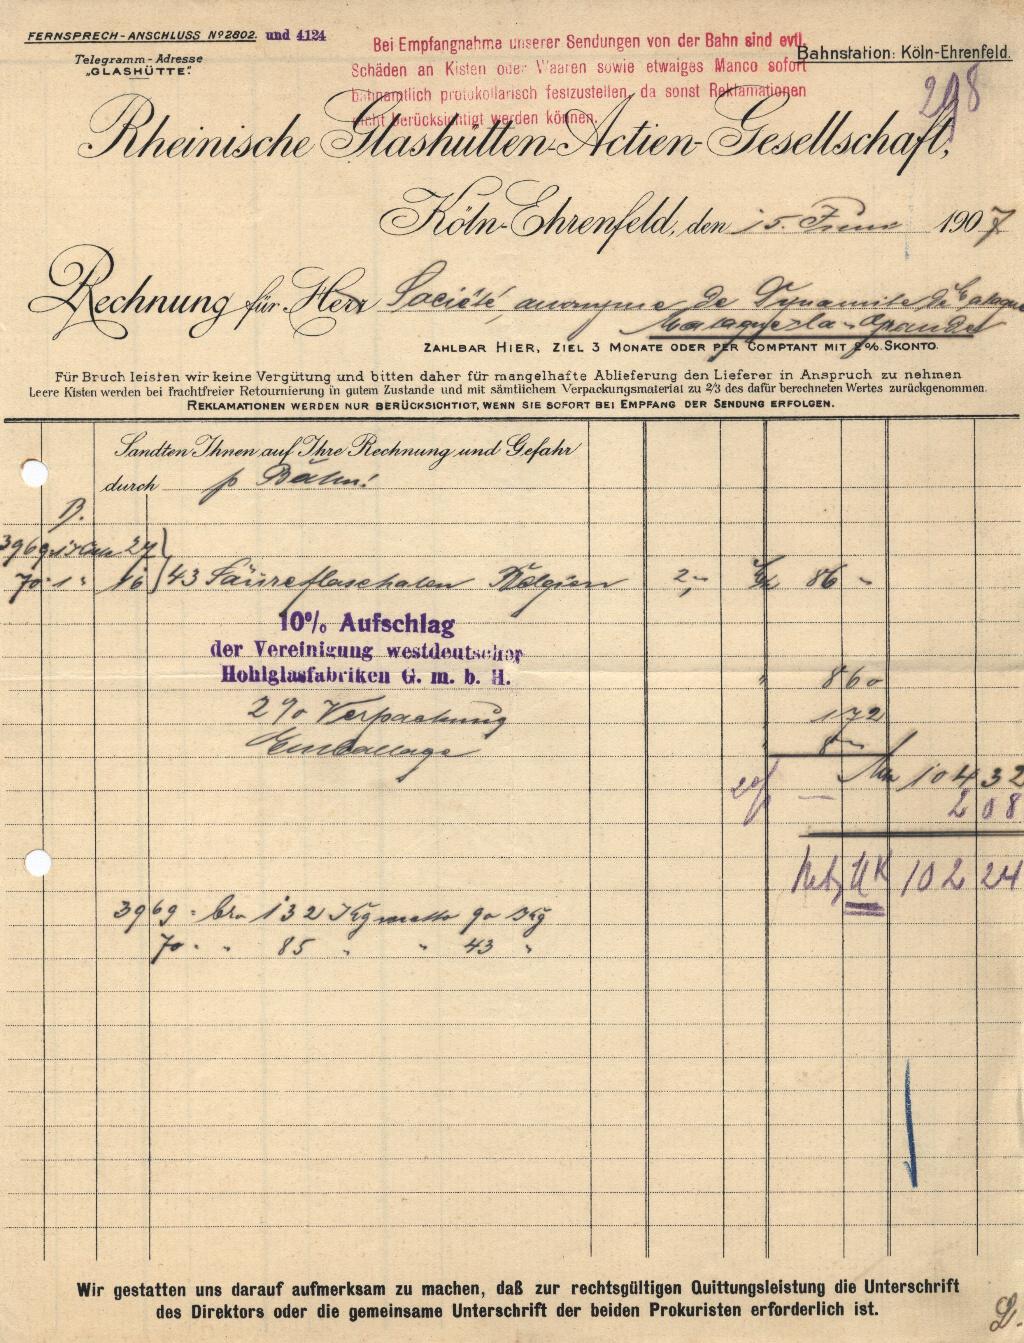 FERNSPRECH-ANSCHLUSS Nº 2802. und 4124
Telegramm-Adresse
„GLASHÜTTE".
Bei Empfangnahme unserer Sendungen von der Bahn sind evtl.
Schäden an Kisten oder Waaren sowie etwaiges Manco sofort
bahnamtlich protokollarisch festzustellen, da sonst Reklamationen
nicht berücksichtigt werden können.
Bahnstation: Köln-Ehrenfeld.
298
Rheinische Glashütten-Actien-Gesellschaft,
Köln-Ehrenfeld, den 15. Juni 1907
Rechnung für Herr Société anonyme de Dynamite de
Matagne-la-Grande
ZAHLBAR HIER, ZIEL 3 MONATE ODER PER COMPTANT MIT 2%. SKONTO.
Für Bruch leisten wir keine Vergütung und bitten daher für mangelhafte Ablieferung den Lieferer in Anspruch zu nehmen
Leere Kisten werden bei frachtfreier Retournierung in gutem Zustande und mit sämtlichem Verpackungsmaterial zu 2/3 des dafür berechneten Wertes zurückgenommen.
REKLAMATIONEN WERDEN NUR BERÜCKSICHTIGT, WENN SIE SOFORT BEI EMPFANG DER SENDUNG ERFOLGEN.
Sandten Ihnen auf Ihre Rechnung und Gefahr
durch p Bahn!
B.
3969 27
70 1 " 16 43 Säureflaschalen Belgien 2,- 86 -
10% Aufschlag
der Vereinigung westdeutscher
Hohlglasfabriken G. m. b. H.
" 8 60
2% Verpackung 1 72
Emballage " 8 -
Mk 104 32
2% 2 08
Netto MK 102 24
3969 = bro 132 Kg netto 90 Kg
70 " " 85 " " 43 "
Wir gestatten uns darauf aufmerksam zu machen, daß zur rechtsgültigen Quittungsleistung die Unterschrift
des Direktors oder die gemeinsame Unterschrift der beiden Prokuristen erforderlich ist.